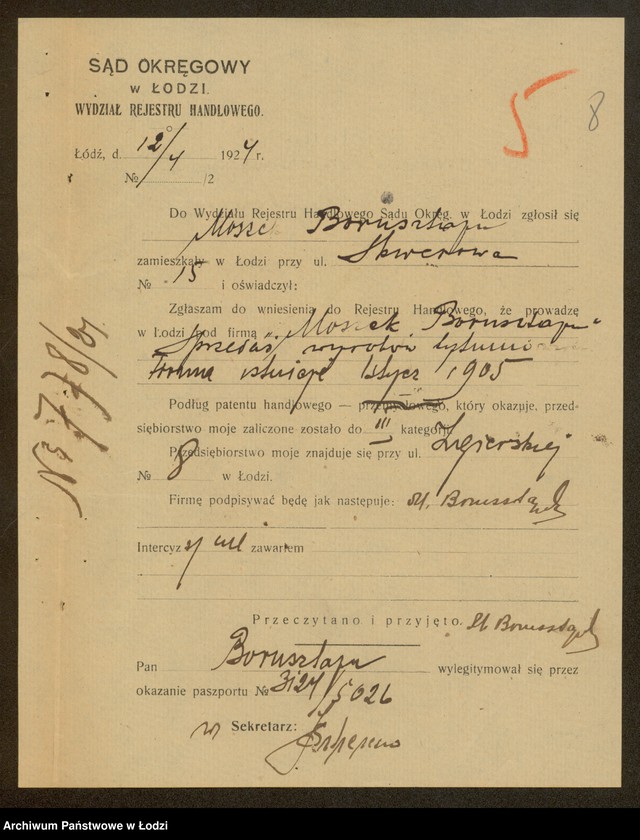 SĄD OKRĘGOWY
w ŁODZI.
WYDZIAŁ REJESTRU HANDLOWEGO.
5
8
Łódź, d. 12/4 1924 r.
№ /2
Do Wydziału Rejestru Handlowego Sądu Okręg. w Łodzi zgłosił się
Moszek Borusztajn
zamieszkały w Łodzi przy ul. Skwerowa
№ 15 i oświadczył:
Zgłaszam do wniesienia do Rejestru Handlowego, że prowadzę
w Łodzi pod firmą „Moszek Borusztajn"
Sprzedaż wyrobów
Firma istnieje 1905
Podług patentu handlowego — przemysłowego, który okazuję, przed-
siębiorstwo moje zaliczone zostało do III kategorji
Przedsiębiorstwo moje znajduje się przy ul. Zgierskiej
№ 8 w Łodzi.
Firmę podpisywać będę jak następuje: M. Borusztajn
Intercyzy nie zawarłem
Przeczytano i przyjęto. M. Borusztajn
Pan Borusztajn wylegitymował się przez
okazanie paszportu № 3124/5026
w Sekretarz:
Archiwum Państwowe w Łodzi